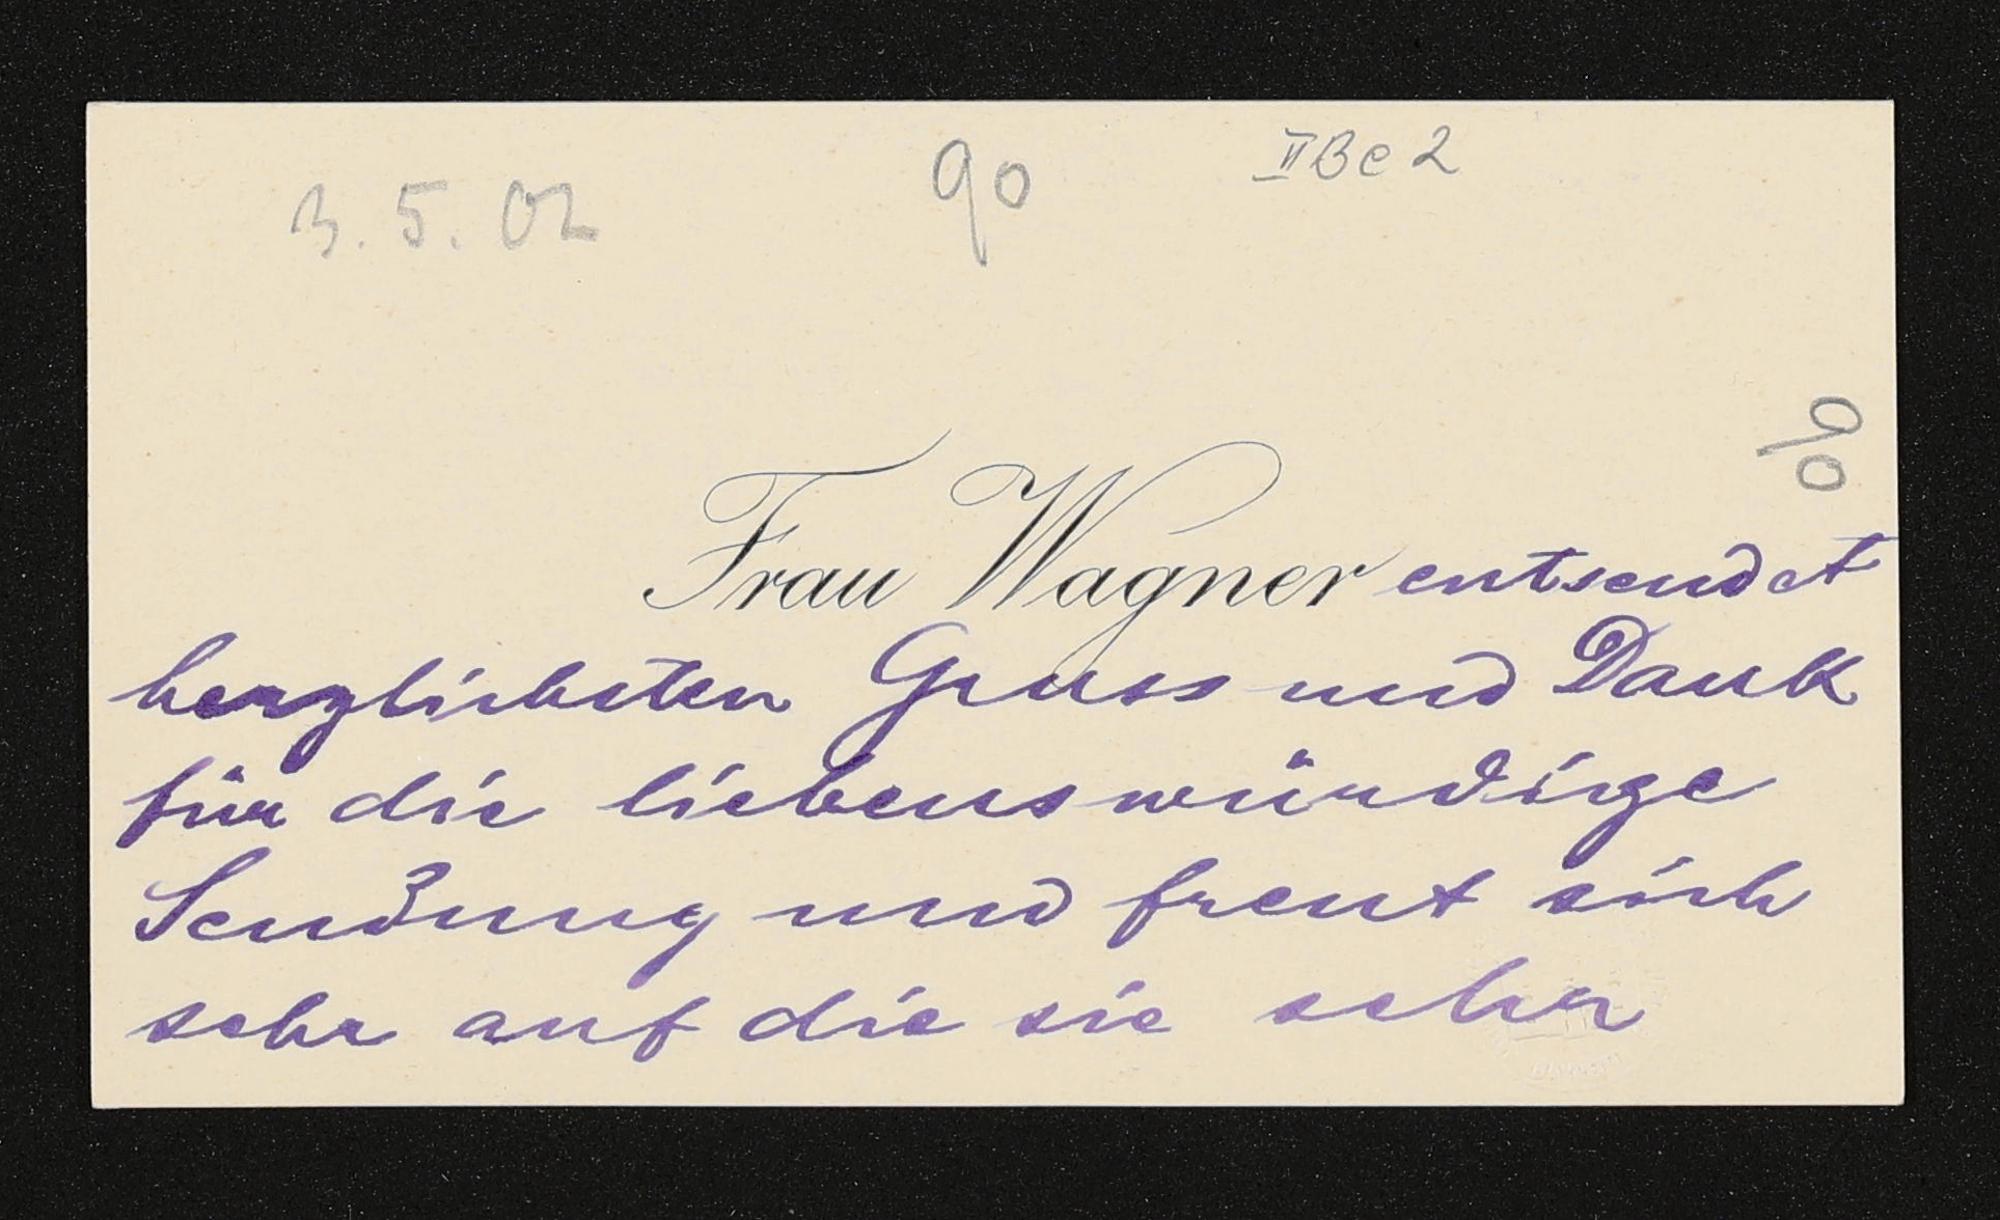 3. 5. 02
90
II B c 2
90
Frau Wagner entsendet
herzlichsten Gruss und Dank
für die liebenswürdige
Sendung und freut sich
sehr auf die sie sehr